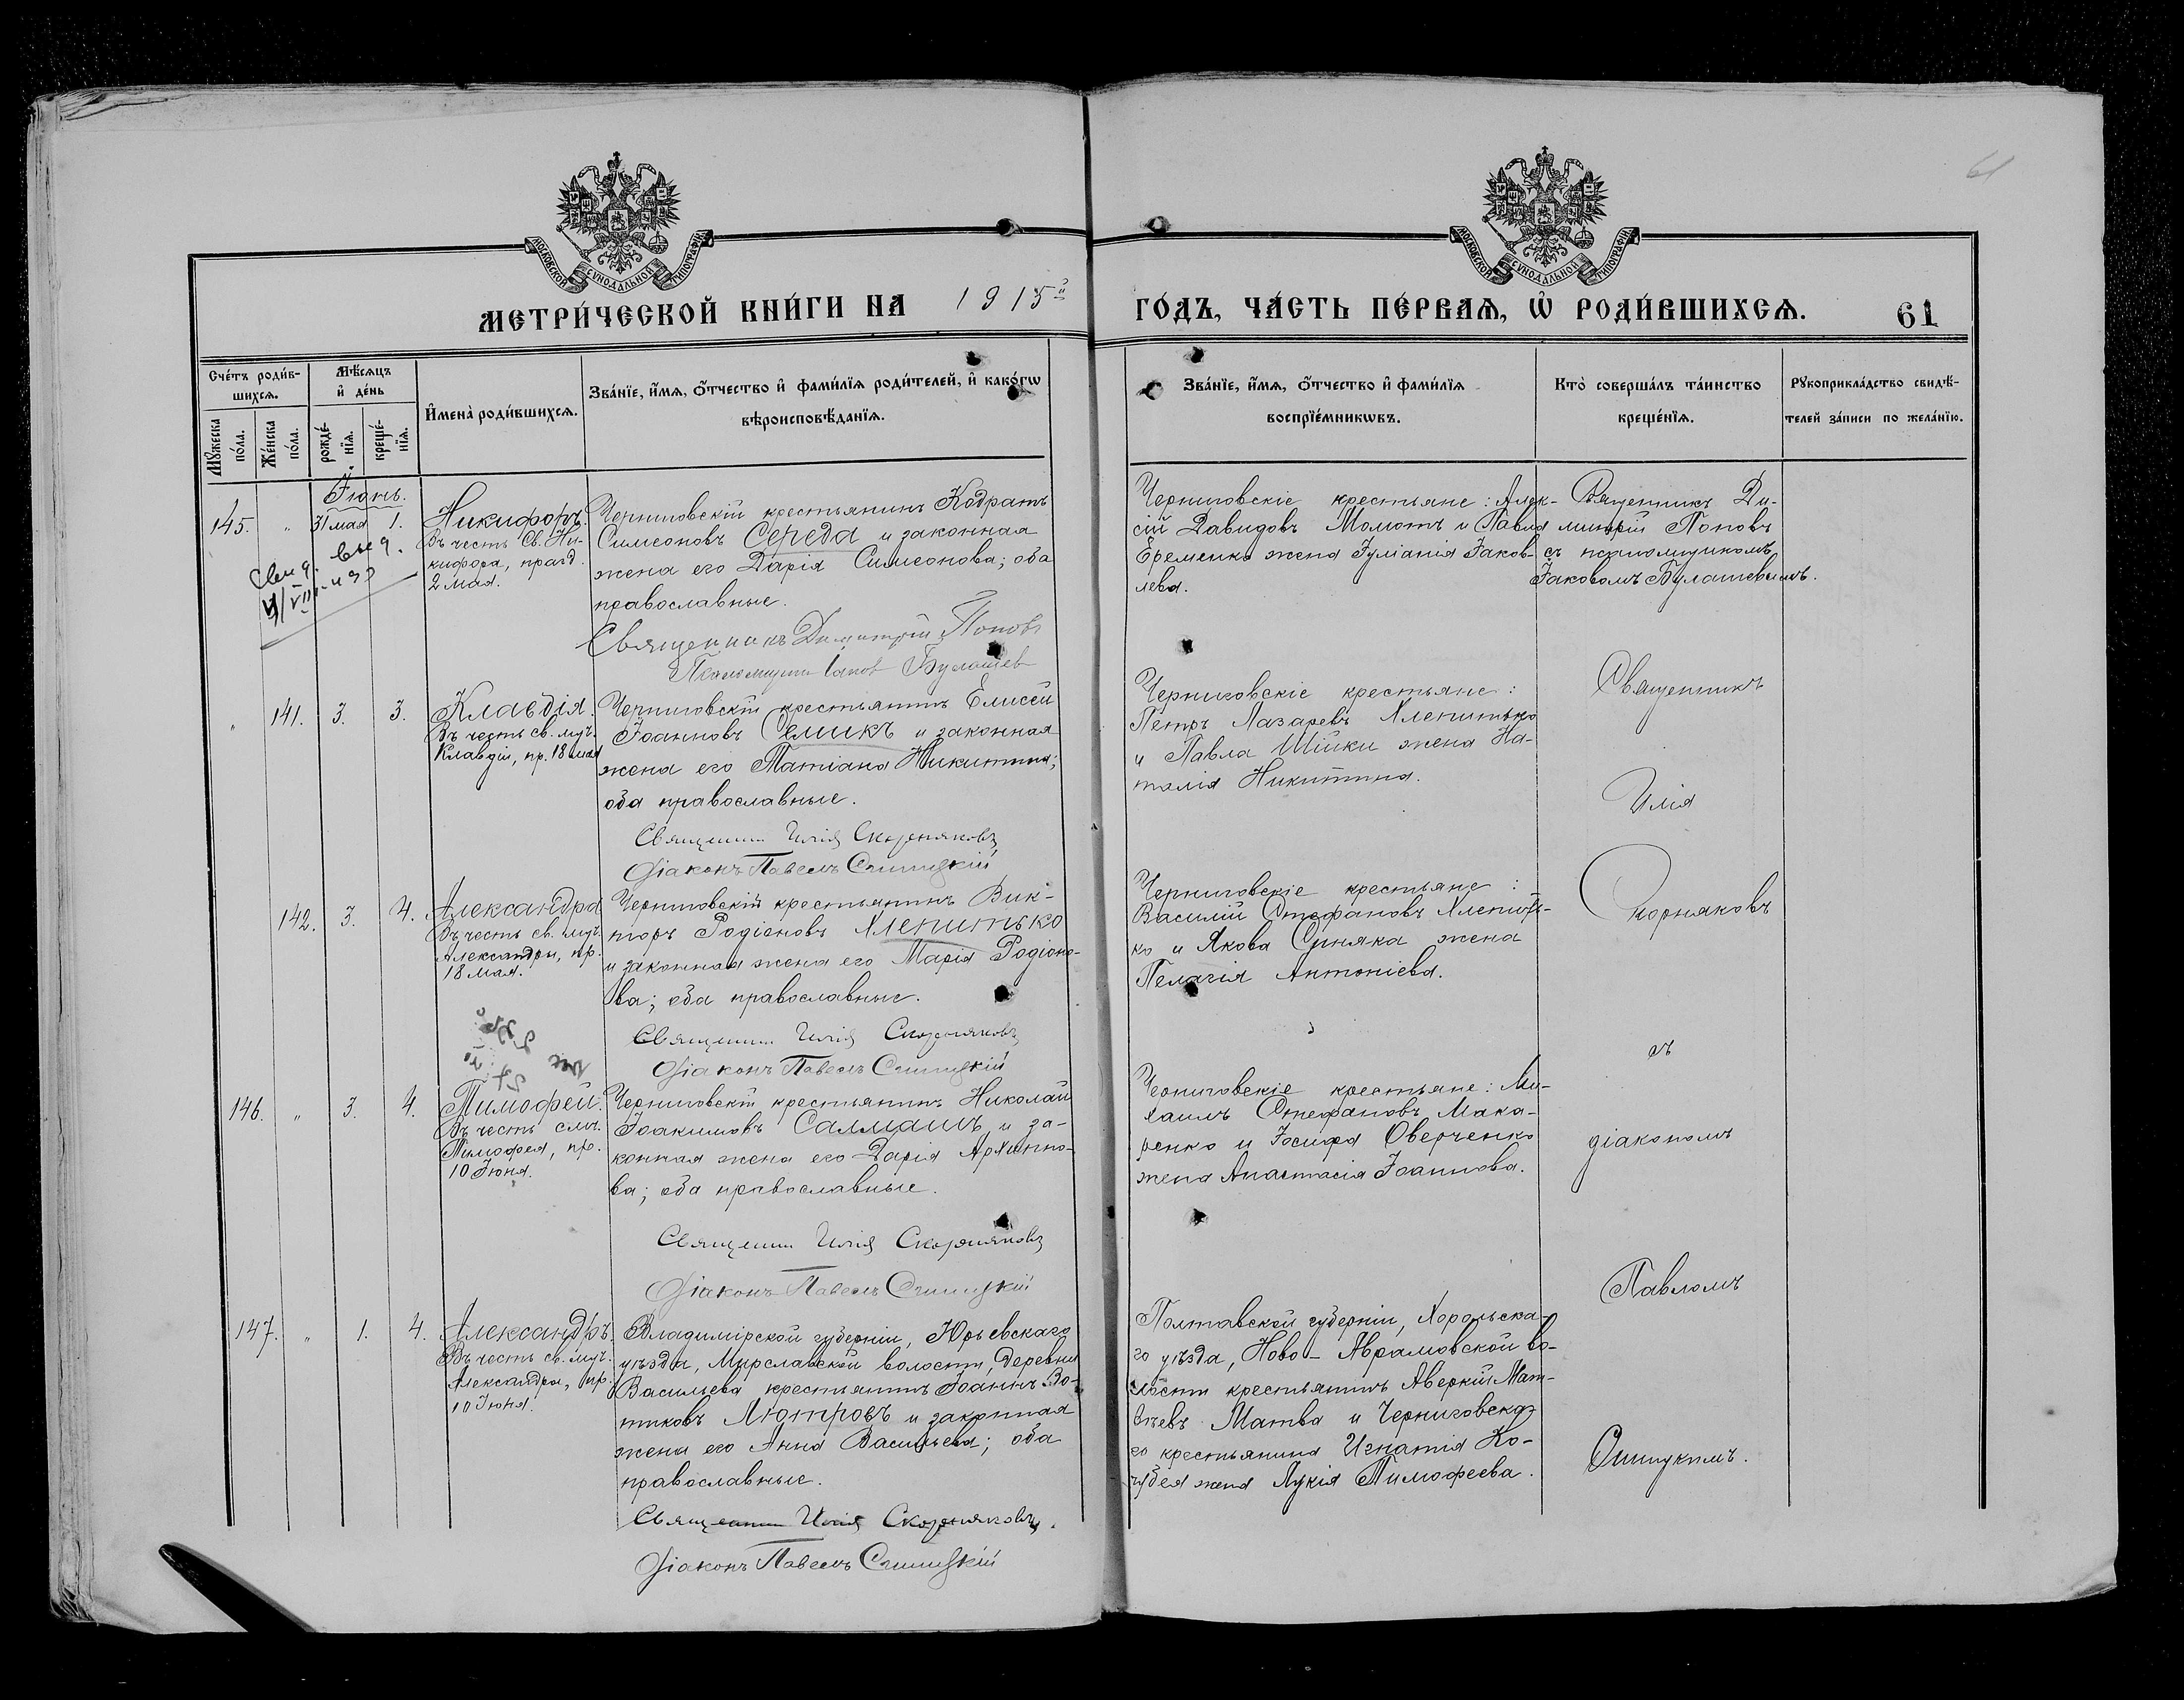 61
МОСКОВСКОЙ СУНОДАЛЬНОЙ ТИПОГРАФІИ
МОСКОВСКОЙ СУНОДАЛЬНОЙ ТИПОГРАФІИ
МЕТРИ́ЧЕСКОЙ КНИ́ГИ НА 1915й ГО́ДЪ, ЧА́СТЬ ПЕ́РВАѦ, Ѡ РОДИ́ВШИХСѦ. 61
Сче́тъ роди́в-
шихсѧ.
Мꙋжеска
по́ла.
Же́нска
по́ла.
Мѣ́сѧцъ
и҆ де́нь
рожде́-
нїѧ.
креще́-
нїѧ.
И҆мена̀ роди́вшихсѧ.
Зва́нїе, и҆́мѧ, ѻ҆́тчество и҆ фами́лїѧ роди́телей, и҆ како́гѡ
вѣроисповѣ́данїѧ.
Зва́нїе, и҆́мѧ, ѻ҆́тчество и҆ фами́лїѧ
воспрїе́мникѡвъ.
Кто̀ соверша́лъ та́инство
креще́нїѧ.
Рꙋкоприкла́дство свидѣ́-
телей за́писи по жела́нїю.
Іюнь.
145. " 31 мая 1.
Никифоръ.
Въ честь Св. Ни-
кифора, празд.
2 мая.
Черниговскій крестьянинъ Кодратъ
Симеоновъ Середа и законная
жена его Дарія Симеонова; оба
православные.
Священникъ Димитрій Поповъ
Псаломщикъ Іаков Булашев
Черниговскіе крестьяне: Алек-
сій Давидовъ Момотъ и Павла
Еременко жена Іуліанія Іаков-
лева.
Священникъ Ди-
митрій Поповъ
съ псаломщикомъ
Іаковомъ Булашевымъ.
" 141. 3. 3.
Клавдія.
Въ честь св. муч.
Клавдіи, пр. 18 мая
Черниговскій крестьянинъ Елисей
Іоанновъ Семикъ и законная
жена его Татіана Никитина;
оба православные.
Священник Илія Скорняковъ
Діаконъ Павелъ
Черниговскіе крестьяне:
Петръ Лазаревъ Хлепитько
и Павла Шійки жена На-
талія Никитина.
Священникъ
Илія
142. 3. 4.
Александра
Въ честь св. муч.
Александры, пр.
18 мая.
Черниговскій крестьянинъ Вик-
торъ Родіоновъ Хлепитько
и законная жена его Марія Родіоно-
ва; оба православные.
Священник Илія Скорняковъ
Діаконъ Павелъ
Черниговскіе крестьяне:
Василій Стефановъ Хлепить-
ко и Якова Синяка жена
Пелагія Антоніева.
Скорняковъ
съ
146. " 3. 4.
Тимофей.
Въ честь смч.
Тимофея, пр.
10 Іюня.
Черниговскій крестьянинъ Николай
Іоакимовъ Салмашъ и за-
конная жена его Дарія Архиппо-
ва; оба православные.
Священник Илія Скорняковъ
Діаконъ Павелъ
Черниговскіе крестьяне: Ми-
хаилъ Стефановъ Мака-
ренко и Іосифа Оверченко
жена Анастасія Іоаннова.
діакономъ
Павломъ
147. " 1. 4.
Александръ.
Въ честь св. муч.
Александра, пр.
10 Іюня.
Владимірской губерніи, Юрьевскаго
уѣзда, Мирславской волости, деревни
Васильева крестьянинъ Іоаннъ
Лютровъ и законная
жена его Анна Васильева; оба
православные.
Священник Илія Скорняковъ.
Діаконъ Павелъ
Полтавской губерніи, Хорольска-
го уѣзда, Ново-Аврамовской во-
лости крестьянинъ Аверкій Мат-
вѣевъ Матва и Черниговска-
го крестьянина Игнатія Ко-
чубея жена Лукія Тимофеева.